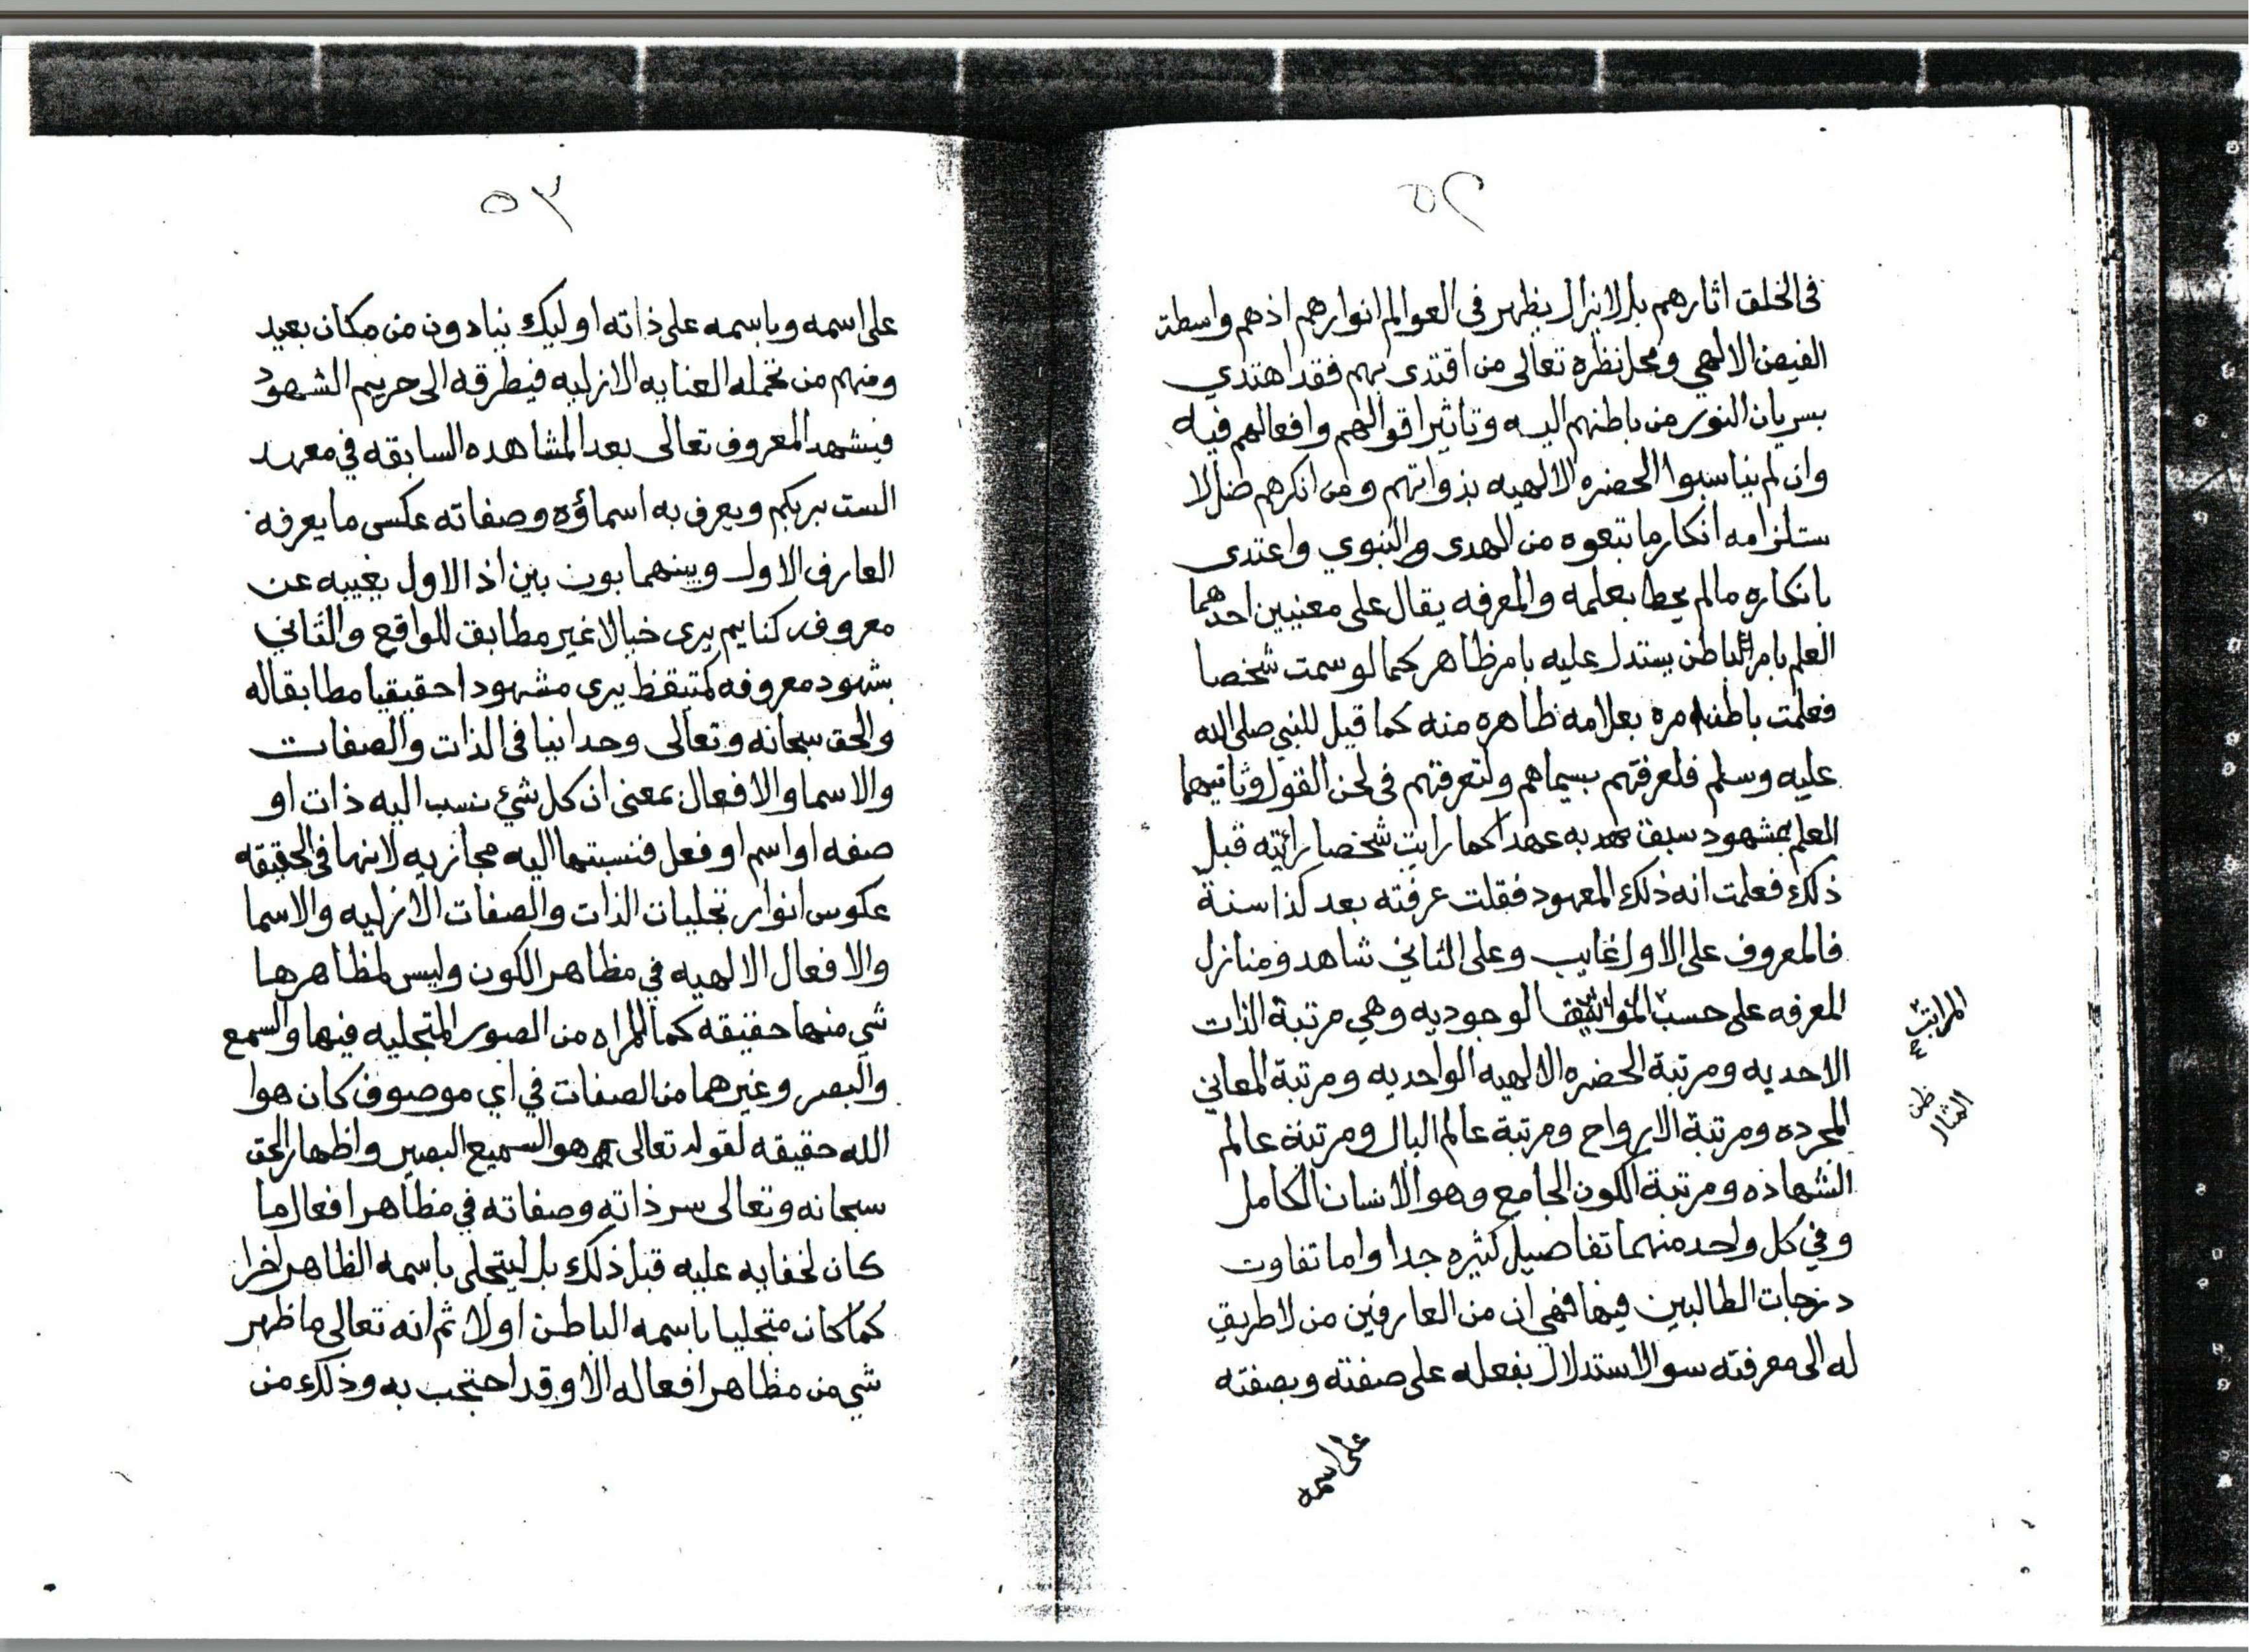 ٥٢
فى الخلق اثارهم بل لا يزال يظهر فى العوالم انوارهم اذهم واسطة
الفيض الالهي ومحل نظره تعالى من اقتدى بهم فقد اهتدي
بسريان النور من باطنهم اليه وتاثير اقوالهم وافعالهم فيه
وان لم يناسبوا الحضره الالهيه بذواتهم ومن انكرهم ضل لا
ستلزامه انكار ما تبعوه من الهدى والنبوي واعتدى
بانكاره مالم يحط بعلمه والمعرفه يقال على معنيين احدهما
العلم بامر الباطن يستدل عليه بامر ظاهر كما لو سمت شخصا
فعلمت باطنه امره بعلامه ظاهره منه كما قيل للنبي صلى الله
عليه وسلم فلعرفتهم بسيماهم ولتعرفتهم فى لحن القول وثانيهما
العلم بمشهود سبق به عهد كما رايت شخصا رائيته قبل
ذلك فعلمت انه ذلك المعهود فقلت عرفته بعد كذا سنة
فالمعروف على الاول غايب وعلى الثاني شاهد ومنازل
المعرفه على حسب الوجوديه وهي مرتبة الذات
المراتب
الاحديه ومرتبة الحضره الالهيه الواحديه ومرتبة المعاني
المجرده ومرتبة الارواح ومرتبة عالم البال ومرتبة عالم
ظن
المثال
الشهاده ومرتبة الكون الجامع وهو الانسان الكامل
وفي كل واحد منهما تفاصيل كثيره جدا واما تفاوت
درجات الطالبين فيها فهي ان من العارفين من لا طريق
له الى معرفته سو الاستدلال بفعله على صفته وبصفته
على اسمه
٥٣
على اسمه وباسمه على ذاته اوليك ينادون من مكان بعيد
ومنهم من تحمله العنايه الازليه فيطرقه الى حريم الشهود
فيشهد المعروف تعالى بعد المشاهده السابقه في معهد
الست بربكم ويعرف به اسماؤه وصفاته عكس ما يعرفه
العارف الاول وبينهما بون بين اذ الاول يغيبه عن
معروفه كنايم يرى خيالا غير مطابق للواقع والثاني
بشهود معروفه كمتيقظ يرى مشهودا حقيقيا مطابقا له
والحق سبحانه وتعالى وحدانيا فى الذات والصفات
والاسما والافعال بمعنى ان كل شئ نسب اليه ذات او
صفه او اسم او فعل فنسبتها اليه مجازيه لانها فى الحقيقه
عكوس انوار تجليات الذات والصفات الازليه والاسما
والافعال الالهيه في مظاهر الكون وليس لمظاهرها
شي منها حقيقه كما للمراه من الصور المتجليه فيها والسمع
والبصر وغيرهما من الصفات في اي موصوف كان هوا
الله حقيقه لقوله تعالى هو السميع البصير واظهار الحق
سبحانه وتعالى سر ذاته وصفاته في مظاهر افعال ما
كان لخفايه عليه قبل ذلك بل ليتجلى باسمه الظاهر اخرا
كما كان متجليا باسمه الباطن اولا ثم انه تعالى ما ظهر
شي من مظاهر افعاله الا وقد احتجب به وذلك من